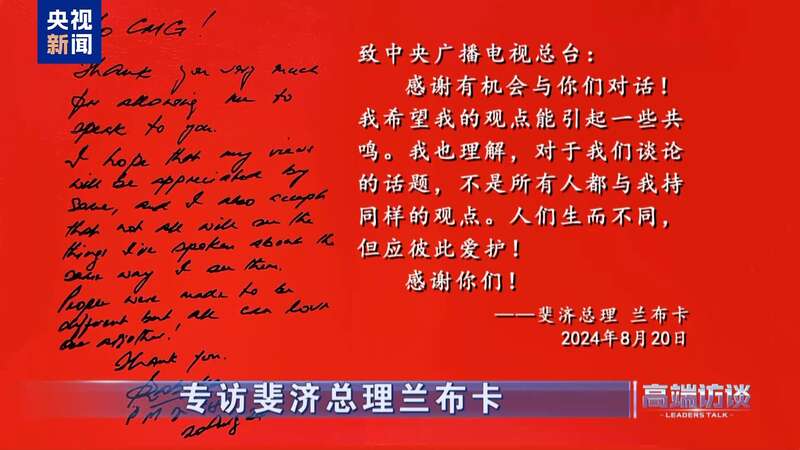 央视
新闻
To CMG!
Thank you very much
for allowing me to
speak to you.
I hope that my views
will be appreciated by
some, and I also accept
that not all will see the
things I've spoken about the
same way I see them.
People were made to be
different but all can love
one another!
Thank you.
P M
致中央广播电视总台：
感谢有机会与你们对话！
我希望我的观点能引起一些共
鸣。我也理解，对于我们谈论
的话题，不是所有人都与我持
同样的观点。人们生而不同，
但应彼此爱护！
感谢你们！
——斐济总理 兰布卡
2024年8月20日
专访斐济总理兰布卡
高端访谈
LEADERS TALK